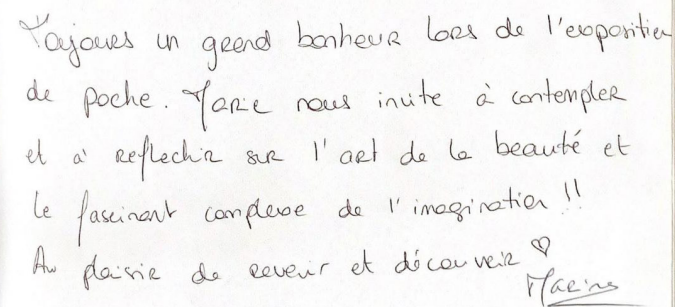 Toujours un grand bonheur lors de l'exposition
de poche. Marie nous invite à contempler
et à reflechir sur l'art de la beauté et
le fascinant complexe de l'imagination !!
Au plaisir de revenir et découvrir ♡
Marine